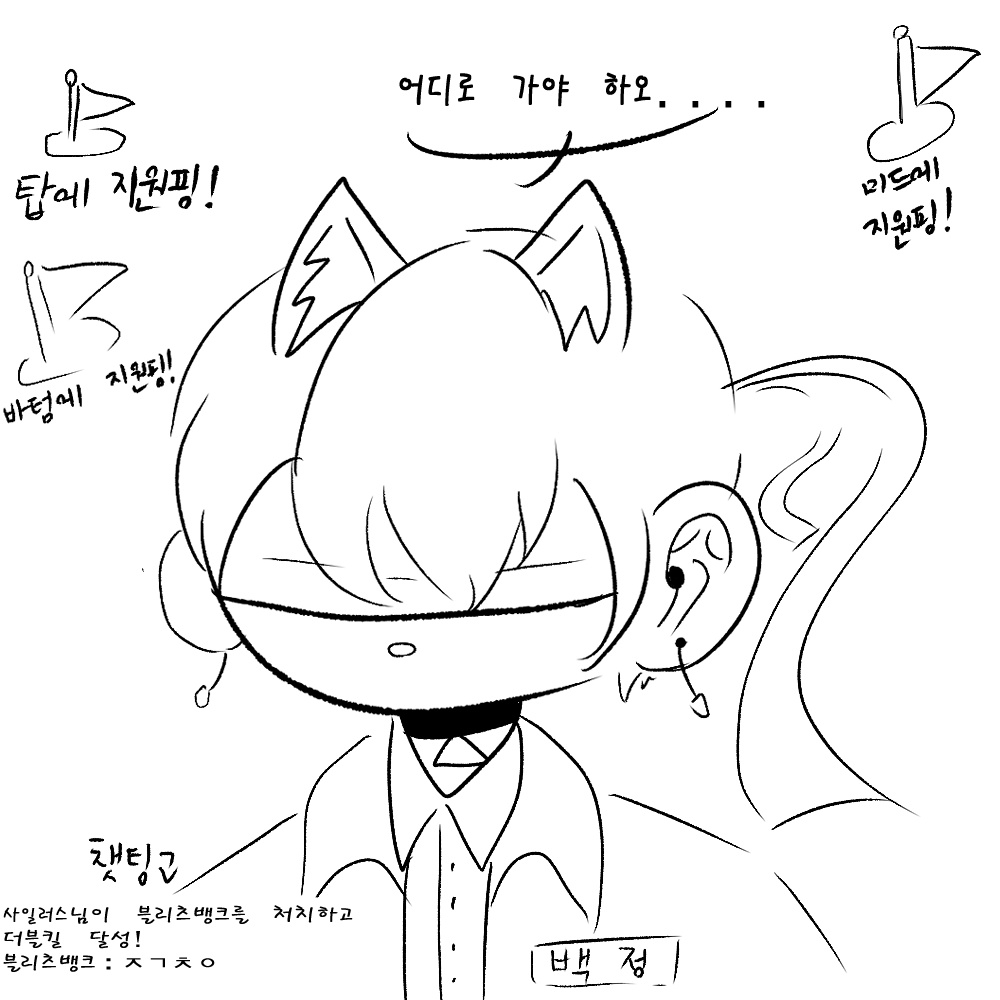 어디로 가야 하오....
탑에 지원핑!
미드에
지원핑!
바텀에 지원핑!
챗팅고
사일러스님이 블리츠뱅크를 처치하고
더블킬 달성!
블리츠뱅크 : ㅈㄱㅊㅇ
백정